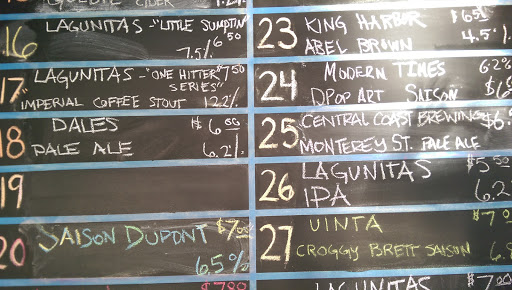 16 LAGUNITAS - "LITTLE SUMPTIN'
7.5% 6 50
17 LAGUNITAS - "ONE HITTER $7 50
SERIES"
IMPERIAL COFFEE STOUT 12.2%
18 DALES $6 00
PALE ALE 6.2%
19
20 SAISON DUPONT $7.00
6.5%
$7.00
23 KING HARBOR $6 50
ABEL BROWN 4.5%
24 MODERN TIMES 6.2%
DPOP ART SAISON
25 CENTRAL COAST BREWING
MONTEREY ST. PALE ALE
26 LAGUNITAS $5 50
IPA 6.2
27 UINTA
CROGGY BRETT SAISON
LAGUNITAS $7 00